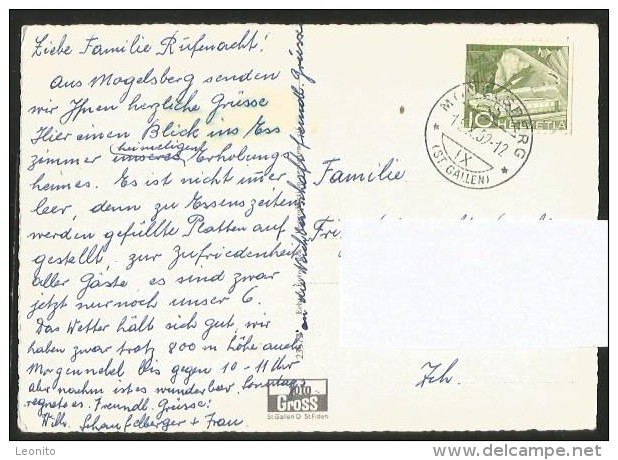 Liebe Familie Rüfenacht!
Aus Mogelsberg senden
wir Ihnen herzliche Grüsse
Hier einen Blick ins Ess
zimmer unseres heimeligen Erholungs
heimes. Es ist nicht imer
leer, denn zu Essenszeiten
werden gefüllte Platten auf
gestellt, zur Zufriedenheit
aller Gäste, es sind zwar
jetzt nur noch unser 6.
Das Wetter hält sich gut, wir
haben zwar trotz 800 m höhe auch
Morgennebel bis gegen 10-11 Uhr
aber nachm ist es wunderbar. Sonntags
regnete es. Freundl. Grüsse!
Wilh. Schaufelberger + Frau
an die Nachbarschaft freundl. Grüsse
Familie
Fri
Zch.
MOGELSBERG
-12
IX
(ST. GALLEN)
10 HELVETIA
Foto
Gross
St Gallen O St Fiden
Leonito
delcampe.net